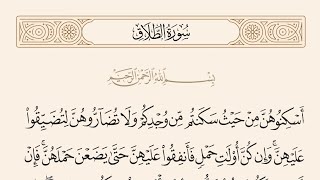 سُورَةُ الطَّلَاقِ
بِسْمِ اللَّهِ الرَّحْمَٰنِ الرَّحِيمِ
أَسْكِنُوهُنَّ مِنْ حَيْثُ سَكَنتُم مِّن وُجْدِكُمْ وَلَا تُضَارُّوهُنَّ لِتُضَيِّقُوا۟
عَلَيْهِنَّ ۚ وَإِن كُنَّ أُو۟لَٰتِ حَمْلٍ فَأَنفِقُوا۟ عَلَيْهِنَّ حَتَّىٰ يَضَعْنَ حَمْلَهُنَّ ۚ فَإِنْ